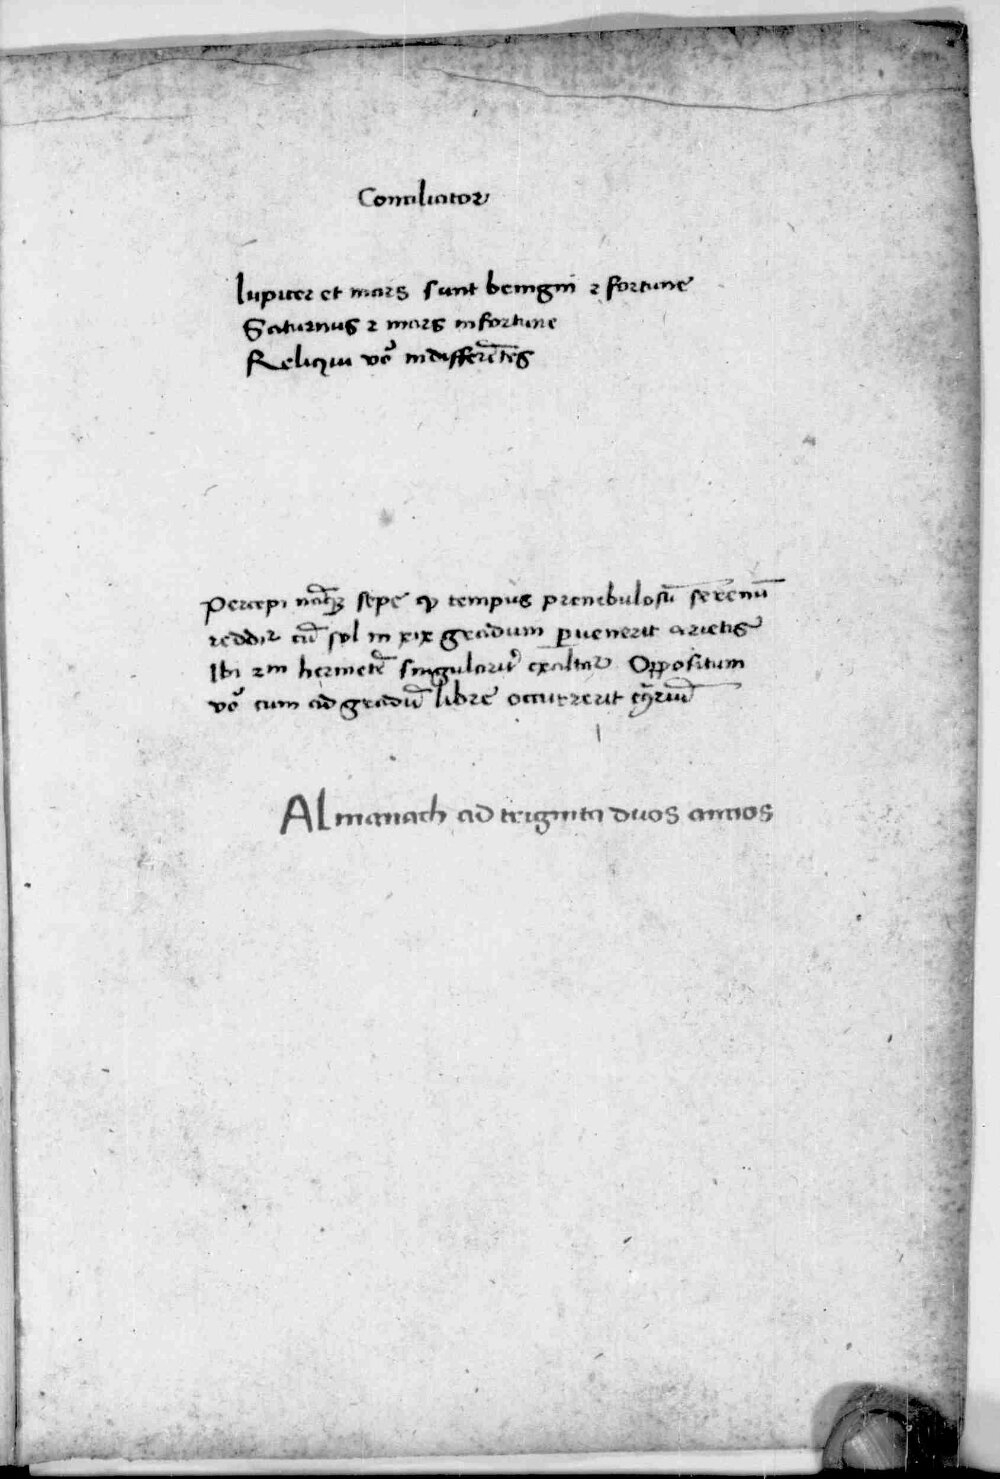 Conciliator
Iupiter et mars sunt benigni ⁊ fortune
Saturnus ⁊ mars infortune
Reliqui vō indifferētes
Percepi sepe ꝙ tempus prenebulosū serenū
reddit cū sol in xix gradum ꝑuenerit arietis
Ibi hermetē singularit̾ exaltat̾ Oppositum
vō cum ad gradū libre occurrerit
Almanach ad triginta duos annos